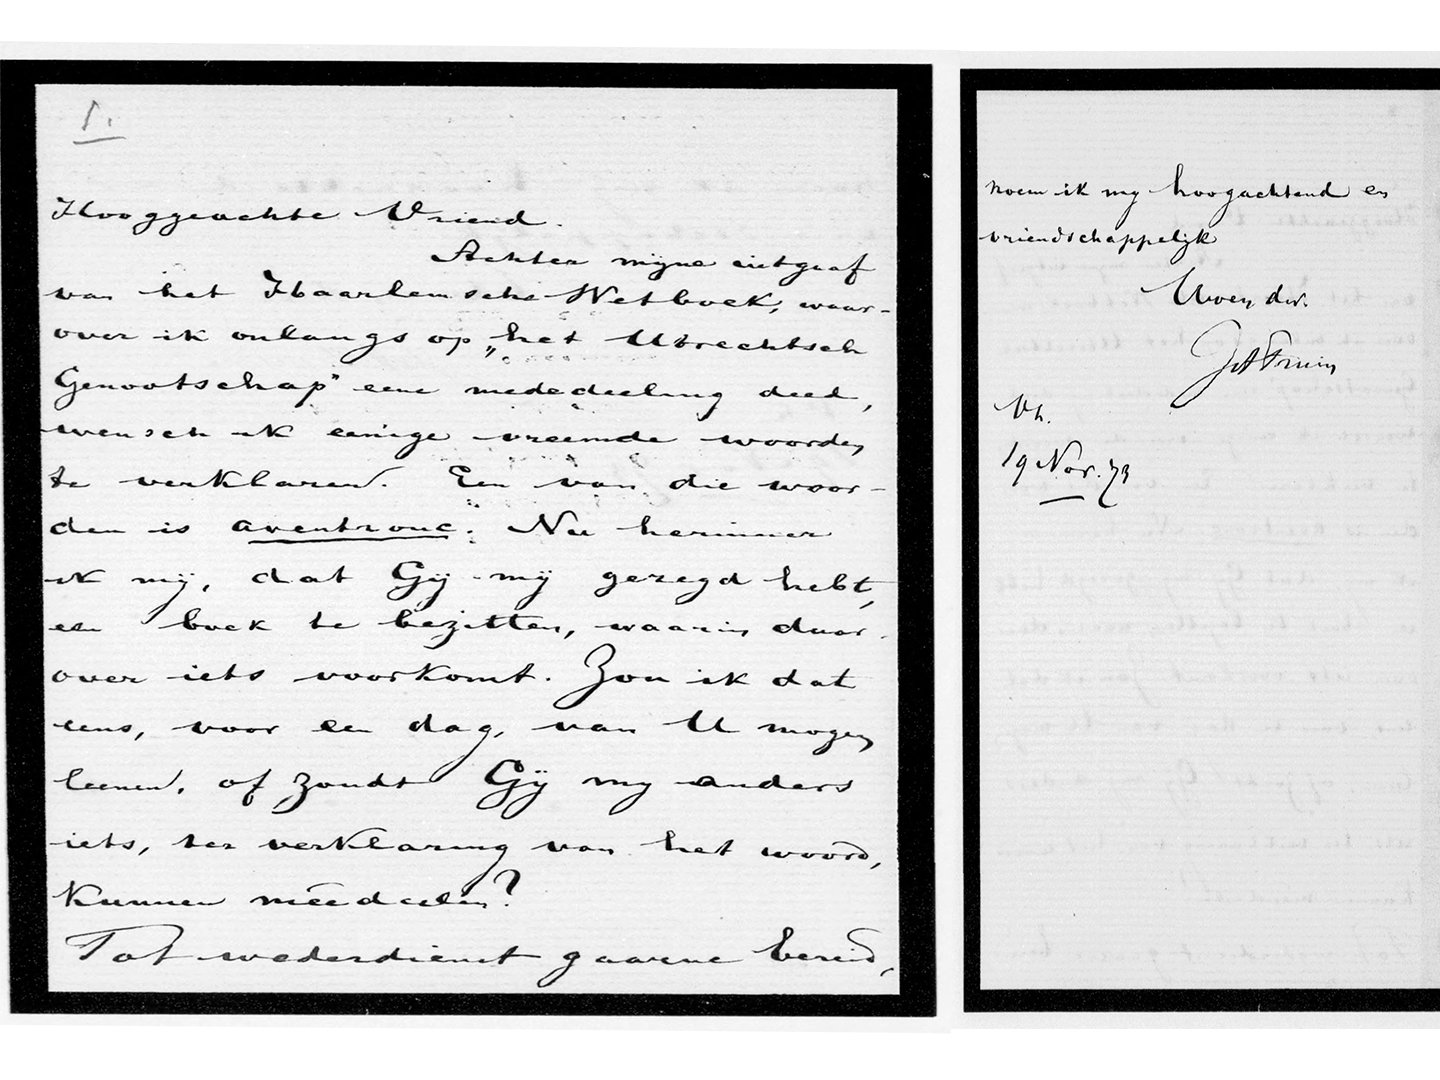 1.
Hooggeachte Vriend.
Achter mijne uitgaaf
van het Haarlemsche Wetboek, waar-
over ik onlangs op „het Utrechtsch
Genootschap" eene mededeeling deed,
wensch ik eenige vreemde woorden
te verklaren. Een van die woor-
den is aventrone. Nu herinner
ik mij, dat Gij mij gezegd hebt,
een boek te bezitten, waarin daar-
over iets voorkomt. Zou ik dat
eens, voor een dag, van U mogen
leenen, of zoudt Gij my anders
iets, ter verklaring van het woord,
kunnen meêdeelen?
Tot wederdienst gaarne bereid,
noem ik my hoogachtend en
vriendschappelijk
Uwen dw.
JAFruin
Uh.
19 Nov. 73